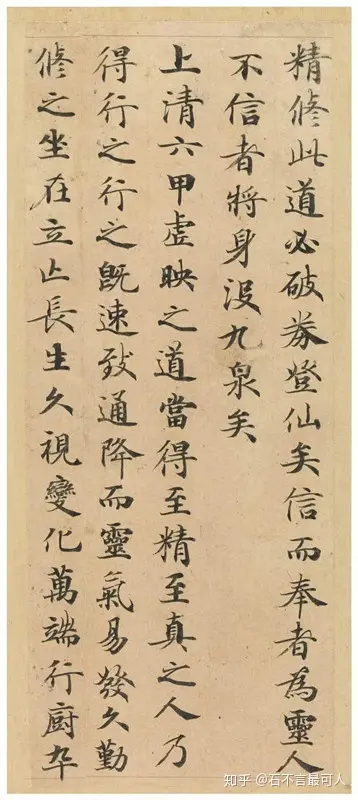 精修此道必破券登仙矣信而奉者為靈人
不信者將身沒九泉矣
上清六甲虛映之道當得至精至真之人乃
得行之行之既速致通降而靈氣易發久勤
修之坐在立亡長生久視變化萬端行廚卒
知乎 @石不言最可人